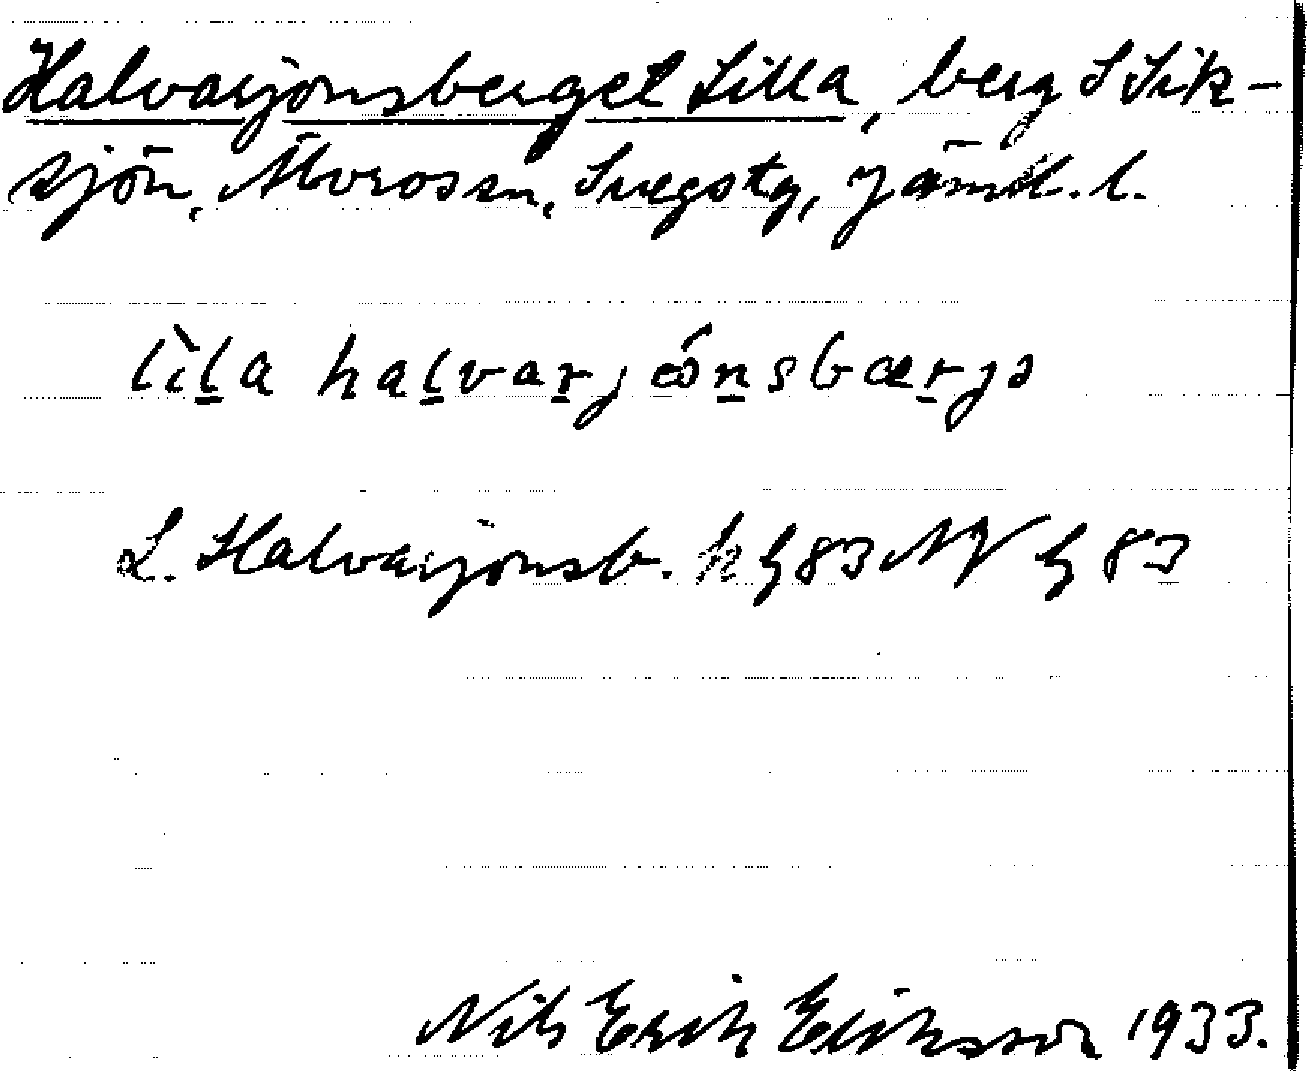 Halvarjönsberget Lilla, berg S Sik-
sjön, Älvros sn, Svegs tg, Jämtl. l.
lìla halvarjǿnsbærjə
L. Halvarjönsb. h G 83 NV G 83
Nils Erik Eriksson 1933.